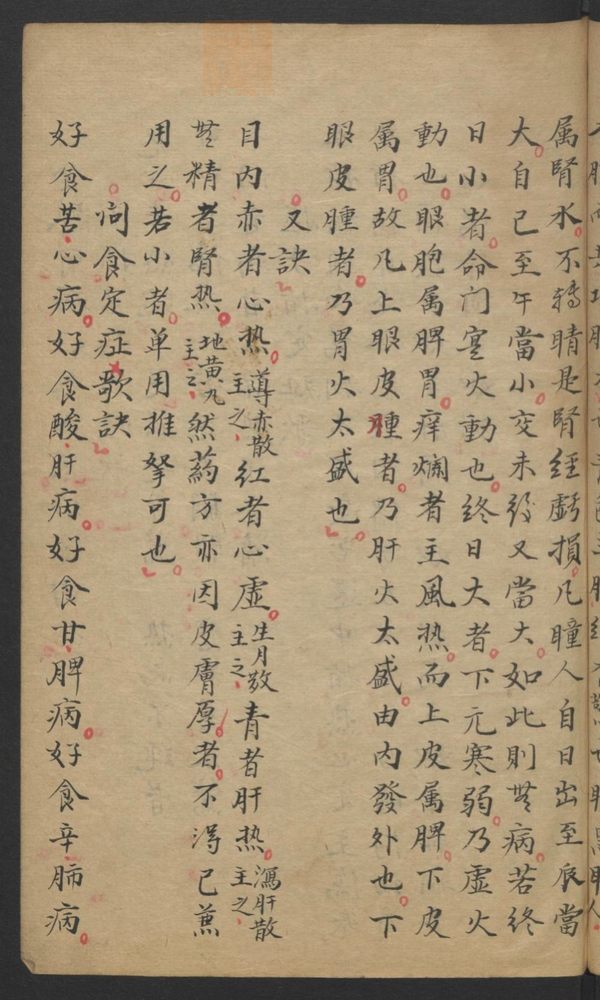 属腎水不轉睛是腎經虧損凡瞳人自日出至辰當
大自巳至午當小交未後又當大如此則无病若終
日小者命门寔火動也終日大者下元寒弱乃虛火
動也眼胞属脾胃痒爛者主風热而上皮属脾下皮
属胃故凡上眼皮腫者乃肝火太盛由内發外也下
眼皮腫者乃胃火太盛也
又訣
目内赤者心热導赤散主之红者心虛生月散主之青者肝热瀉肝散主之
无精者腎热地黄丸主之然葯方亦因皮膚厚者不淂已兼
用之若小者单用推拏可也
问食定症歌訣
好食苦心病好食酸肝病好食甘脾病好食辛肺病